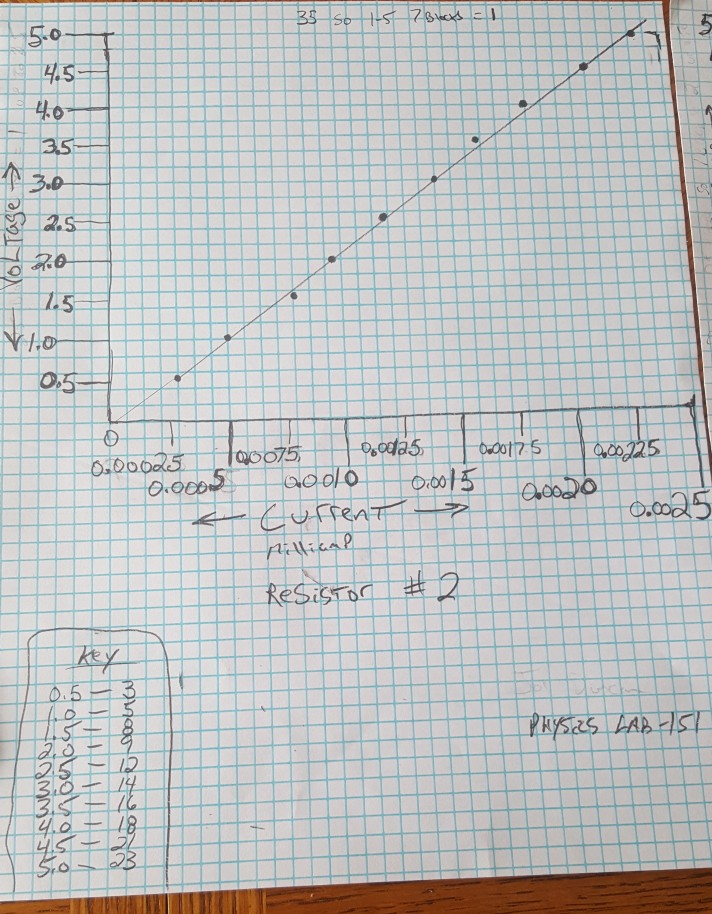 35 so 1-5 7 Blocks = 1
5.0
4.5
4.0
3.5
3.0
2.5
2.0
1.5
1.0
0.5
← Voltage →
0
0.00025
0.0005
0.0075
0.0010
0.00125
0.0015
0.00175
0.0020
0.00225
0.0025
← Current →
Milliamp
Resistor # 2
Key
0.5 — 3
1.0 — 5
1.5 — 8
2.0 — 9
2.5 — 12
3.0 — 14
3.5 — 16
4.0 — 18
4.5 — 21
5.0 — 23
Physics LAB-151
5